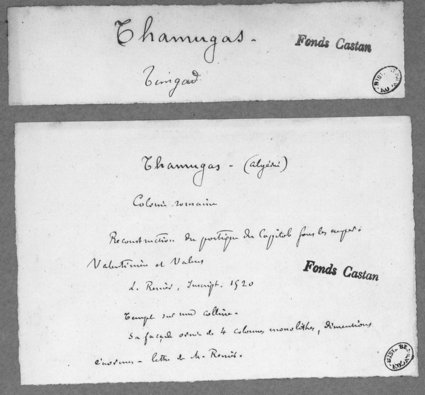 Thamugas -
Fonds Castan
Timgad
Thamugas - (Algérie)
Colonie romaine
Reconstruction du portique du Capitole sous les emper.
Valentinien et Valens
Fonds Castan
L. Renier, Inscript. 1520
Temple sur une colline.
Sa façade ornée de 4 colonnes monolithes, dimensions
énormes - lettre de M. Renier.